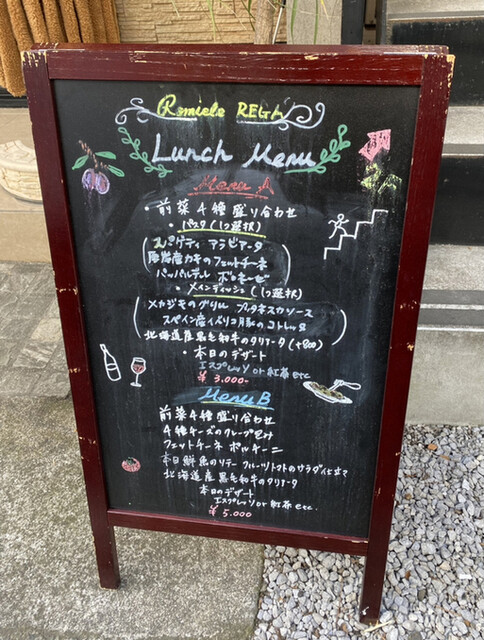 Romiele REGA
Lunch Menu
Menu A
・前菜4種盛り合わせ
・パスタ(1つ選択)
スパゲティ アラビアータ
厚岸産カキのフェットチーネ
パッパルデッレ ボロネーゼ
・メインディッシュ(1つ選択)
メカジキのグリル プッタネスカソース
スペイン産イベリコ豚のコトレッタ
北海道産黒毛和牛のタリアータ(+800)
・本日のデザート
エスプレッソ or 紅茶 etc
¥3,000-
Menu B
前菜4種盛り合わせ
4種チーズのクレープ包み
フェットチーネ ポルチーニ
本日鮮魚のソテー フルーツトマトのサラダ仕立て
北海道産黒毛和牛のタリアータ
本日のデザート
エスプレッソ or 紅茶 etc.
¥5,000